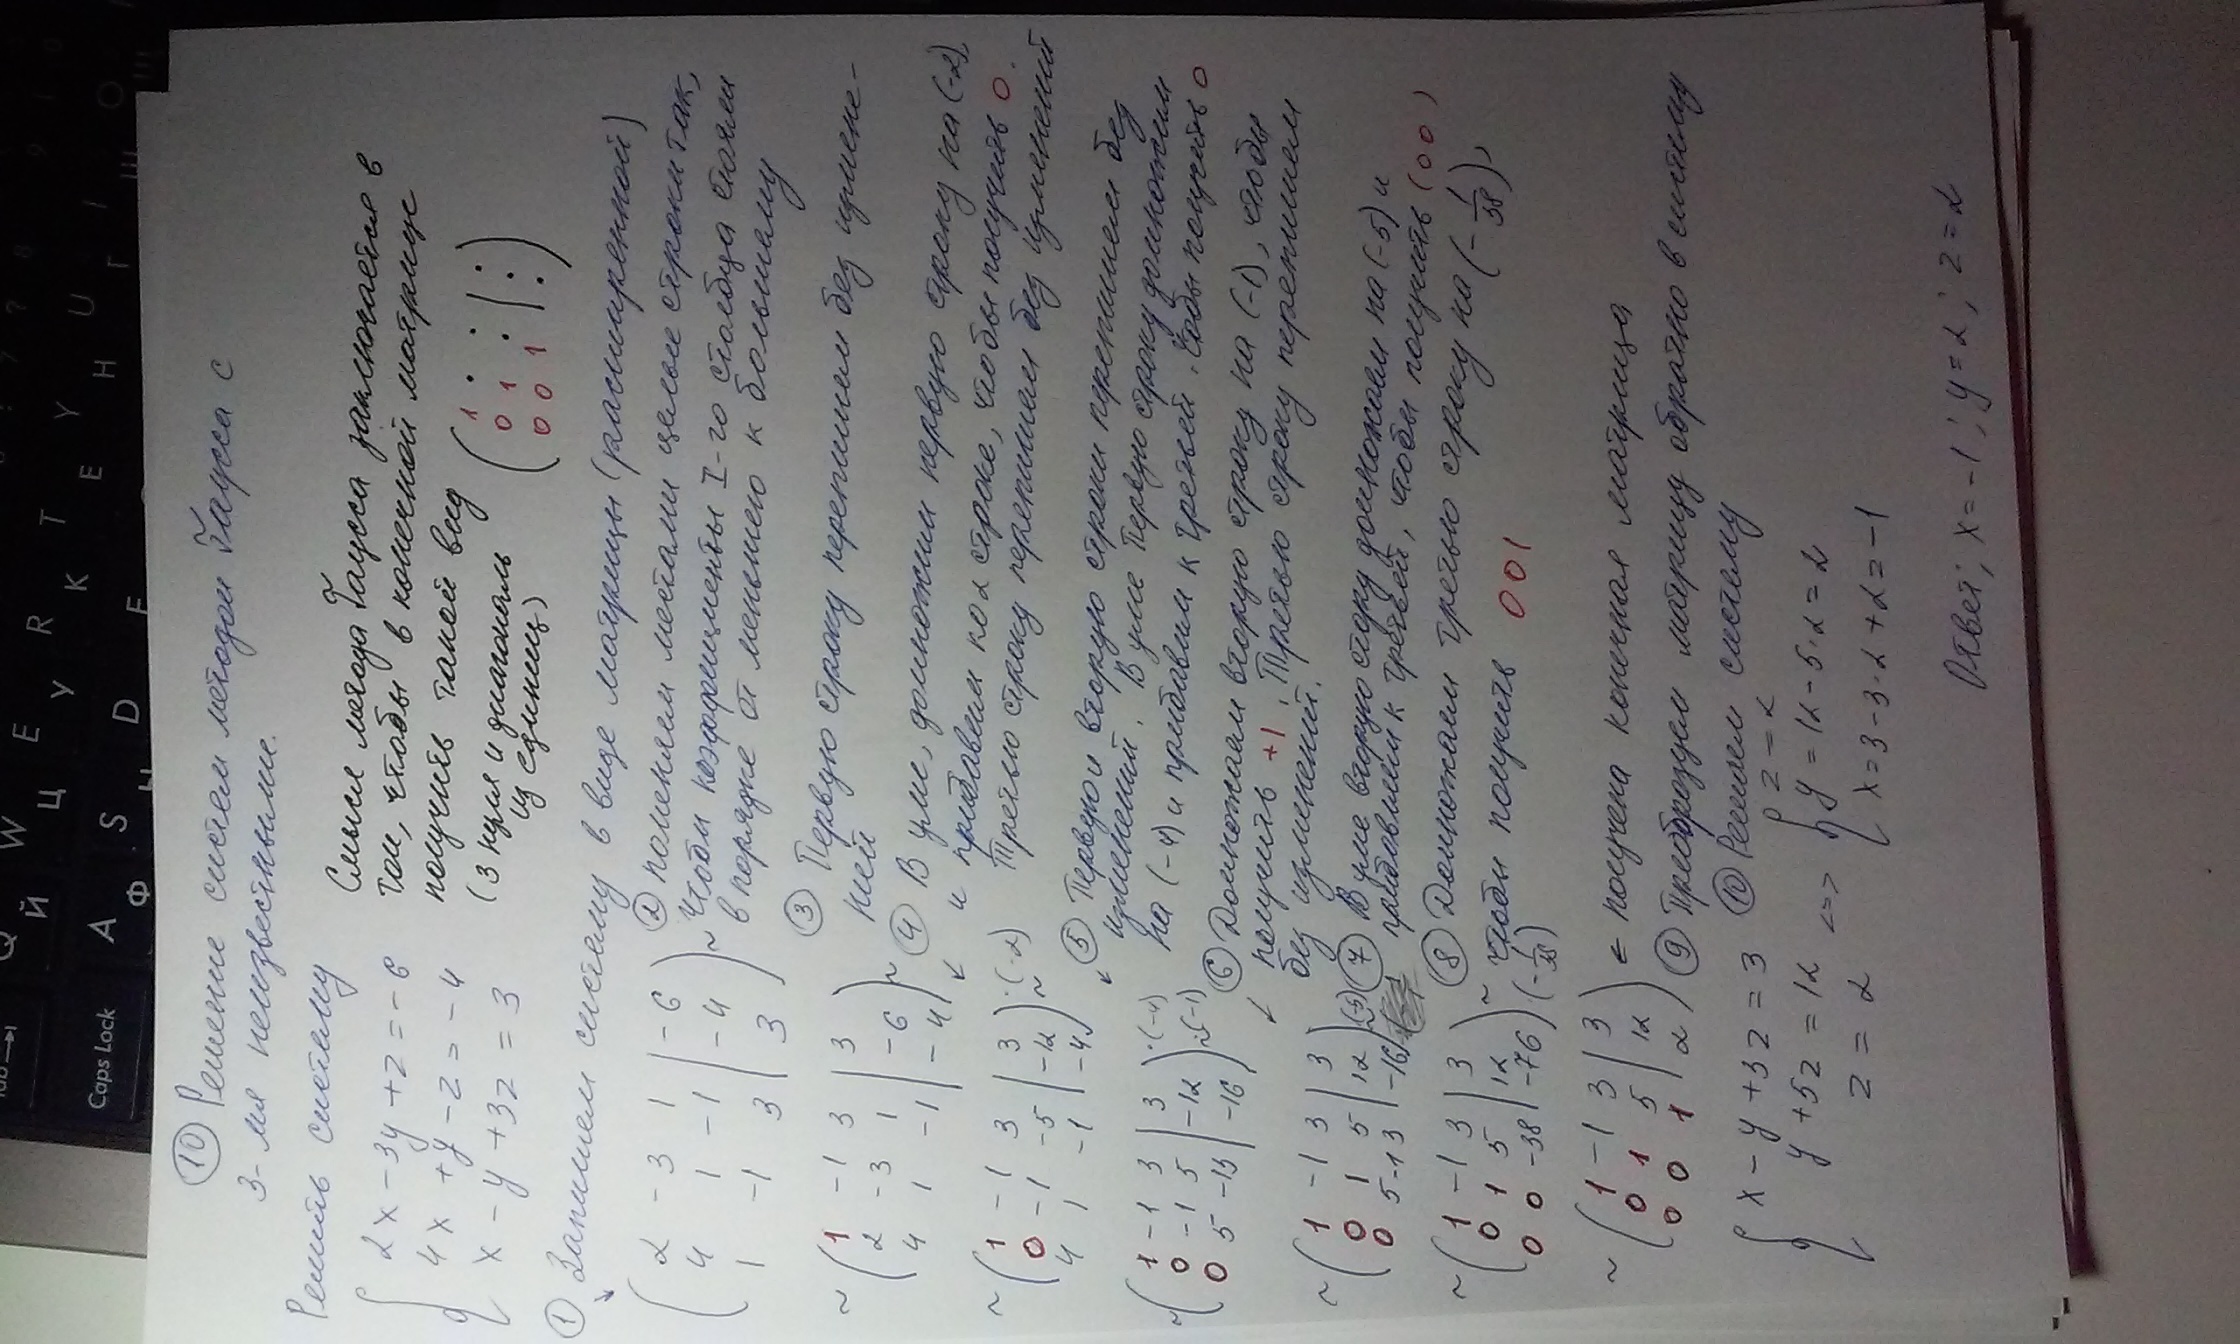 ⑩ Решение систем методом Гаусса с
3-мя неизвестными.
Решить систему
{ 2x - 3y + z = -6
4x + y - z = -4
x - y + 3z = 3
Смысл метода Гаусса заключается в
том, чтобы в конечной матрице
получить такой вид
(3 нуля и диагональ
из единиц)
( 1 . . | .
0 1 . | .
0 0 1 | . )
① Запишем систему в виде матрицы (расширенной)
( 2 -3 1 | -6
4 1 -1 | -4
1 -1 3 | 3 ) ~
② поменяем местами целые строки так,
чтобы коэффициенты I-го столбца стояли
в порядке от меньшего к большему
~ ( 1 -1 3 | 3
2 -3 1 | -6
4 1 -1 | -4 ) ~
③ Первую строку перепишем без измене-
ний
④ В уме, домножим первую строку на (-2)
и прибавим ко 2 строке, чтобы получить 0.
Третью строку перепишем без изменений
~ ( 1 -1 3 | 3
0 -1 -5 | -12
4 1 -1 | -4 ) ·(-2) ~
⑤ Первую и вторую строки перепишем без
изменений. В уме первую строку домножим
на (-4) и прибавим к третьей. чтобы получить 0
~ ( 1 -1 3 | 3
0 -1 5 | -12
0 5 -13 | -16 ) ·(-4) ~·(-1)
⑥ Домножаем вторую строку на (-1), чтобы
получить +1. Третью строку перепишем
без изменений.
~ ( 1 -1 3 | 3
0 1 5 | 12
0 5 -13 | -16 ) (-5) ~
⑦ В уме вторую строку домножаем на (-5) и
прибавляем к третьей, чтобы получить (0 0)
~ ( 1 -1 3 | 3
0 1 5 | 12
0 0 -38 | -76 ) ~ (-1/38)
⑧ Домножаем третью строку на (-1/38),
чтобы получить 0 0 1
~ ( 1 -1 3 | 3
0 1 5 | 12
0 0 1 | 2 ) ← получена конечная матрица
⑨ Преобразуем матрицу обратно в систему
{ x - y + 3z = 3
y + 5z = 12
z = 2 <=>
⑩ Решаем систему
{ z = 2
y = 12 - 5·2 = 2
x = 3 - 3·2 + 2 = -1
Ответ; x = -1; y = 2; z = 2
Tab
Caps Lock
Q W E R T Y U I
Й Ц У К Е Н Г Ш
A S D
Ф
7 8 9